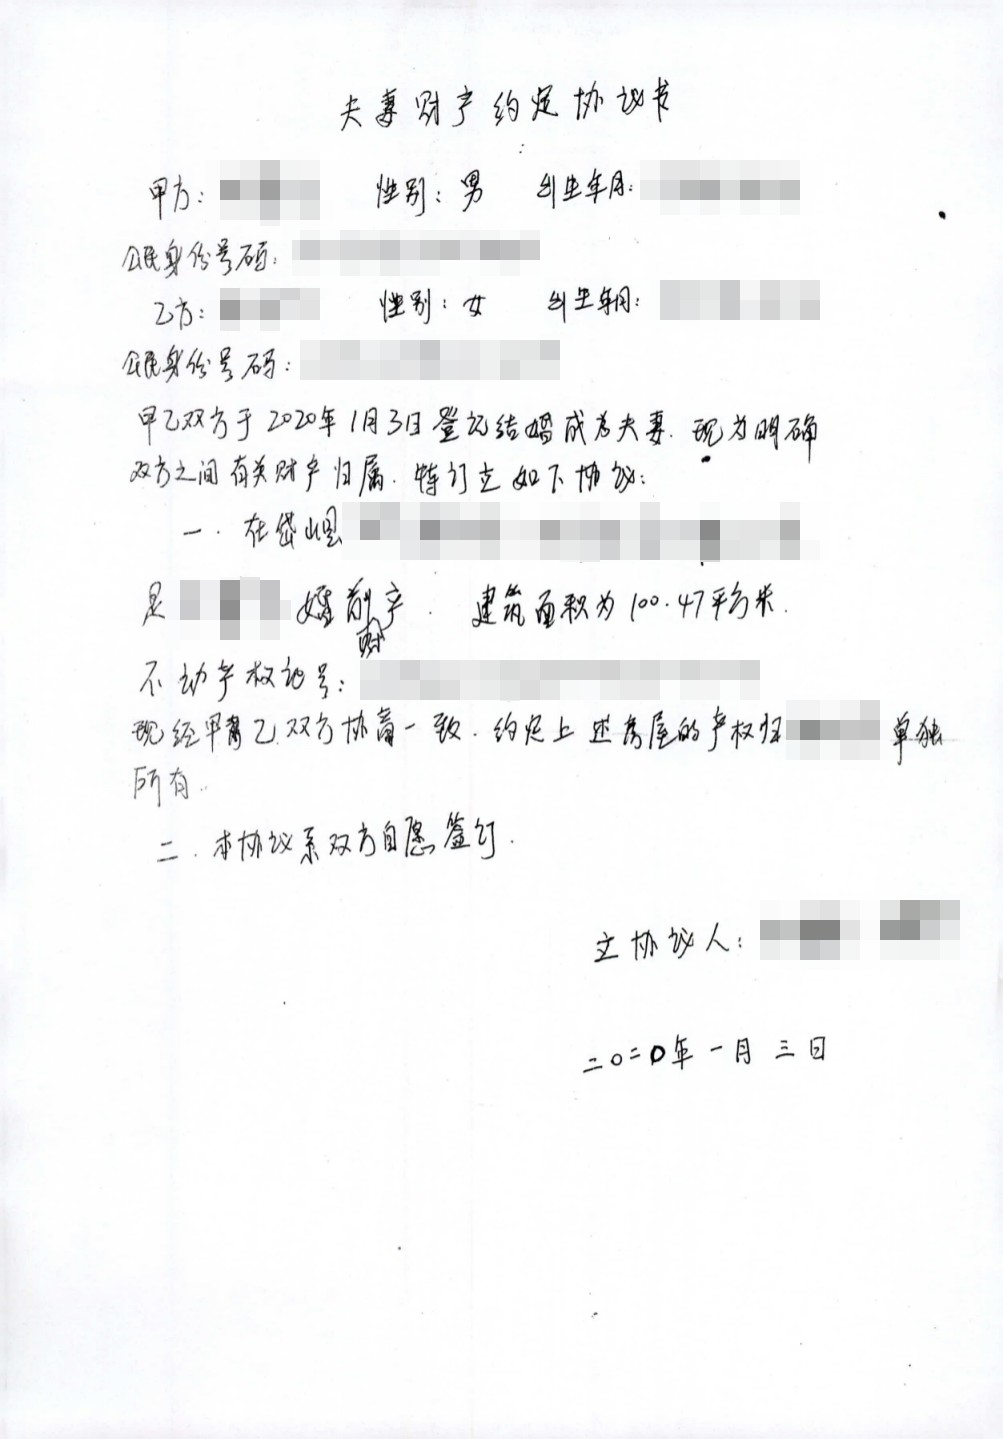 夫妻财产约定协议书
甲方: 性别: 男 出生年月:
公民身份号码:
乙方: 性别: 女 出生年月:
公民身份号码:
甲乙双方于2020年1月3日登记结婚成为夫妻. 现为明确
双方之间有关财产归属. 特订立如下协议:
一. 在岱山县
是 婚前财产. 建筑面积为100.47平方米.
不动产权证号:
现经甲 乙双方协商一致. 约定上述房屋的产权归 单独
所有.
二. 本协议系双方自愿签订.
立协议人:
二〇二〇年一月三日